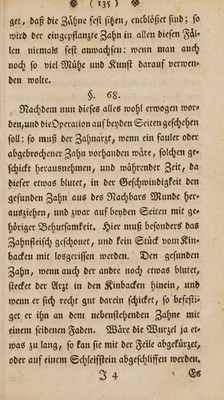 ( 135 )
get, daß die Zähne fest sitzen, entblößet sind; so
wird der eingepflanzte Zahn in allen diesen Fäl-
len niemals fest anwachsen: wenn man auch
noch so viel Mühe und Kunst darauf verwen-
den wolte.
§. 68.
Nachdem nun dieses alles wohl erwogen wor-
den, und die Operation auf beyden Seiten geschehen
soll: so muß der Zahnarzt, wenn ein fauler oder
abgebrochener Zahn vorhanden wäre, solchen ge-
schickt herausnehmen, und währender Zeit, da
dieser etwas blutet, in der Geschwindigkeit den
gesunden Zahn aus des Nachbars Munde her-
ausziehen, und zwar auf beyden Seiten mit ge-
höriger Behutsamkeit. Hier muß besonders das
Zahnfleisch geschonet, und kein Stück vom Kin-
backen mit losgerissen werden. Den gesunden
Zahn, wenn auch der andre noch etwas blutet,
stecket der Arzt in den Kinbacken hinein, und
wenn er sich recht gut darein schicket, so befesti-
get er ihn an dem nebenstehenden Zahne mit
einem seidenen Faden. Wäre die Wurzel ja et-
was zu lang, so kan sie mit der Feile abgekürzet,
oder auf einem Schleifstein abgeschliffen werden.
J 4 Es